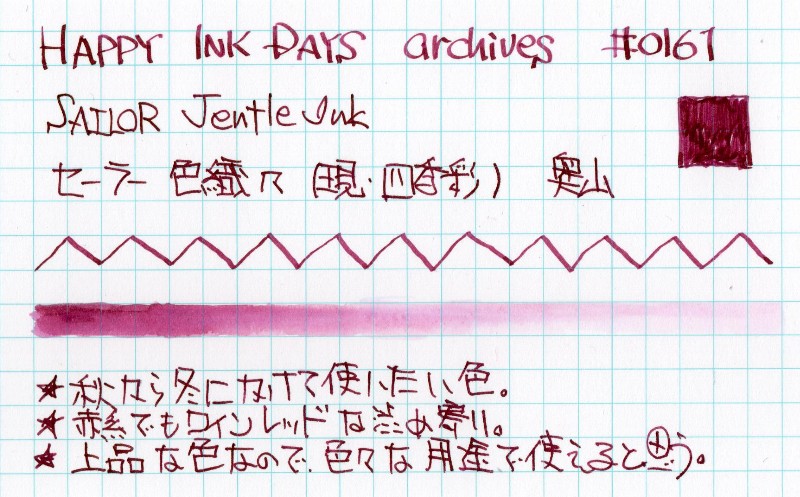 HAPPY INK DAYS archives #0161
SAILOR Jentle Ink
セーラー 色織々 (現・四季彩) 奥山
★ 秋から冬にかけて使いたい色。
★ 赤系でもワインレッドな渋め寄り。
★ 上品な色なので、色々な用途で使えると思う。